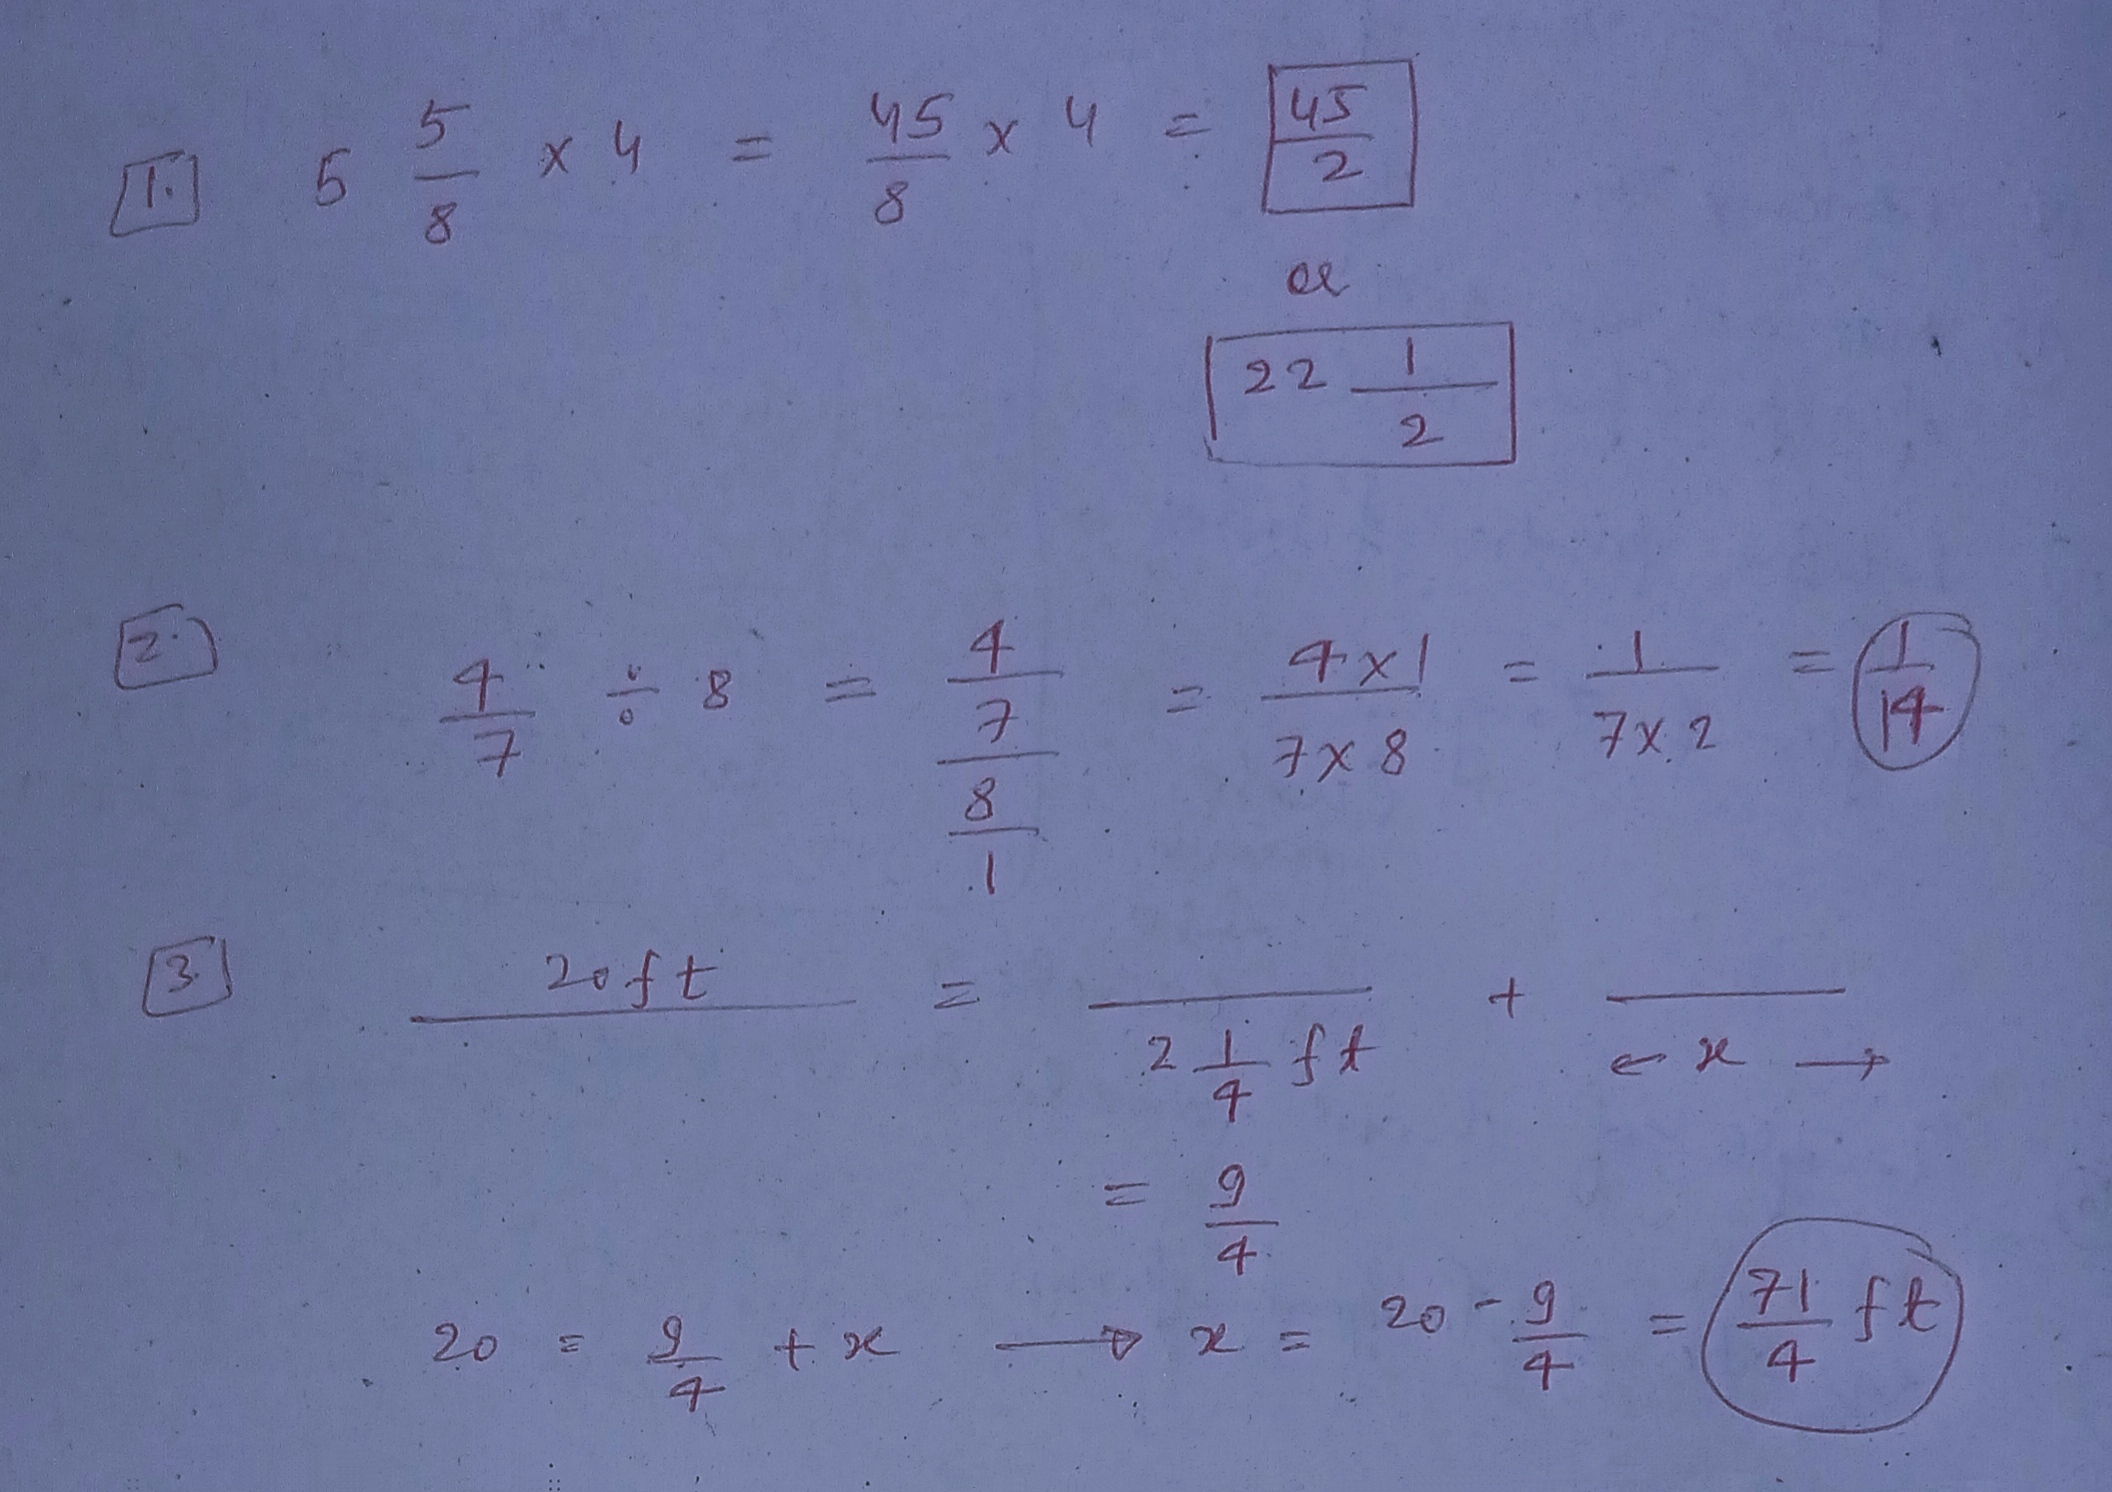 1. 5 5/8 x 4 = 45/8 x 4 = 45/2
or
22 1/2
2. 4/7 ÷ 8 = 4/7 / 8/1 = 4x1 / 7x8 = 1 / 7x2 = 1/14
3. 20ft = 2 1/4 ft + ← x →
= 9/4
20 = 9/4 + x → x = 20 - 9/4 = 71/4 ft